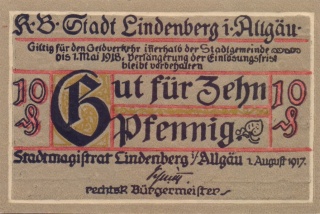 K.B. Stadt Lindenberg i. Allgäu.
Giltig für den Geldverkehr i̅llerhalb der Stadtgemeinde
bis 1. Mai 1918. Verlängerung der Einlösungsfrist
bleibt vorbehalten
10 Gut für Zehn 10
₰ Pfennig ₰
Stadtmagistrat Lindenberg i/Allgäu 1. August 1917.
rechtsk Bürgermeister